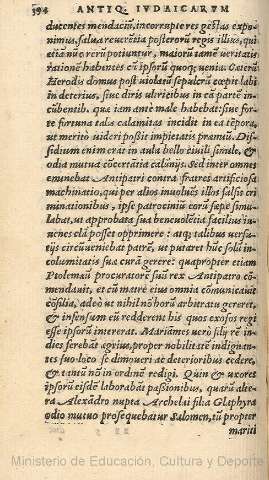 394 ANTIQ. IVDAICARVM
ducentes mendaciū, incorrupte res gestas expo-
nimus, salua reuerētia posterorū regis illius, qui
etiā nūc rerū potiuntur, maiorē tamē veritatis
rationē habentes cū ipsorū quoq; uenia. Caeterū
Herodis domus post uiolatū sepulcrū cœpit labi
in deterius, siue diris ultricibus in eā partē in-
cūbentib. quæ iam antè male habebat: siue for-
te fortuna talis calamitas incidit in ea tēpora,
ut meritò uideri possit impietatis præmiū. Dis-
sidium enim erat in aula bello ciuili simile, &
odia mutua cōcertātia calūnijs. Sed inter omnes
eminebat Antipatri contra fratres artificiosa
machinatio, qui per alios inuoluēs illos falsis cri
minationibus, ipse patrocinia eorū sæpè simu-
labat, ut approbata sua beneuolētia facilius in-
cautos clā posset opprimere: atq; talibus versu-
tijs circūueniebat patrē, ut putaret hūc solū in-
columitatis suæ curā gerere: quapropter etiam
Ptolemæū procuratorē suū rex Antipatro cō-
mendauit, et cū matre eius omnia cōmunicauit
cōsilia, adeò ut nihil nō horū arbitratu gereret,
& infensum eū redderent his quos exosos regi
esse ipsorū intererat. Mariāmes uerò filij rē in-
dies ferebāt agrius, propter nobilitatē indignan-
tes suo loco se dimoueri ac deterioribus cedere,
& tantū nō in ordinē redigi. Quin & uxores
ipsorū eisdē laborabāt passionibus, quarū alte-
ra Alexādro nupta Archelai filia Glaphyra
odio mutuo prosequebatur Salomen, tū propter
mariti
Ministerio de Educación, Cultura y Deporte